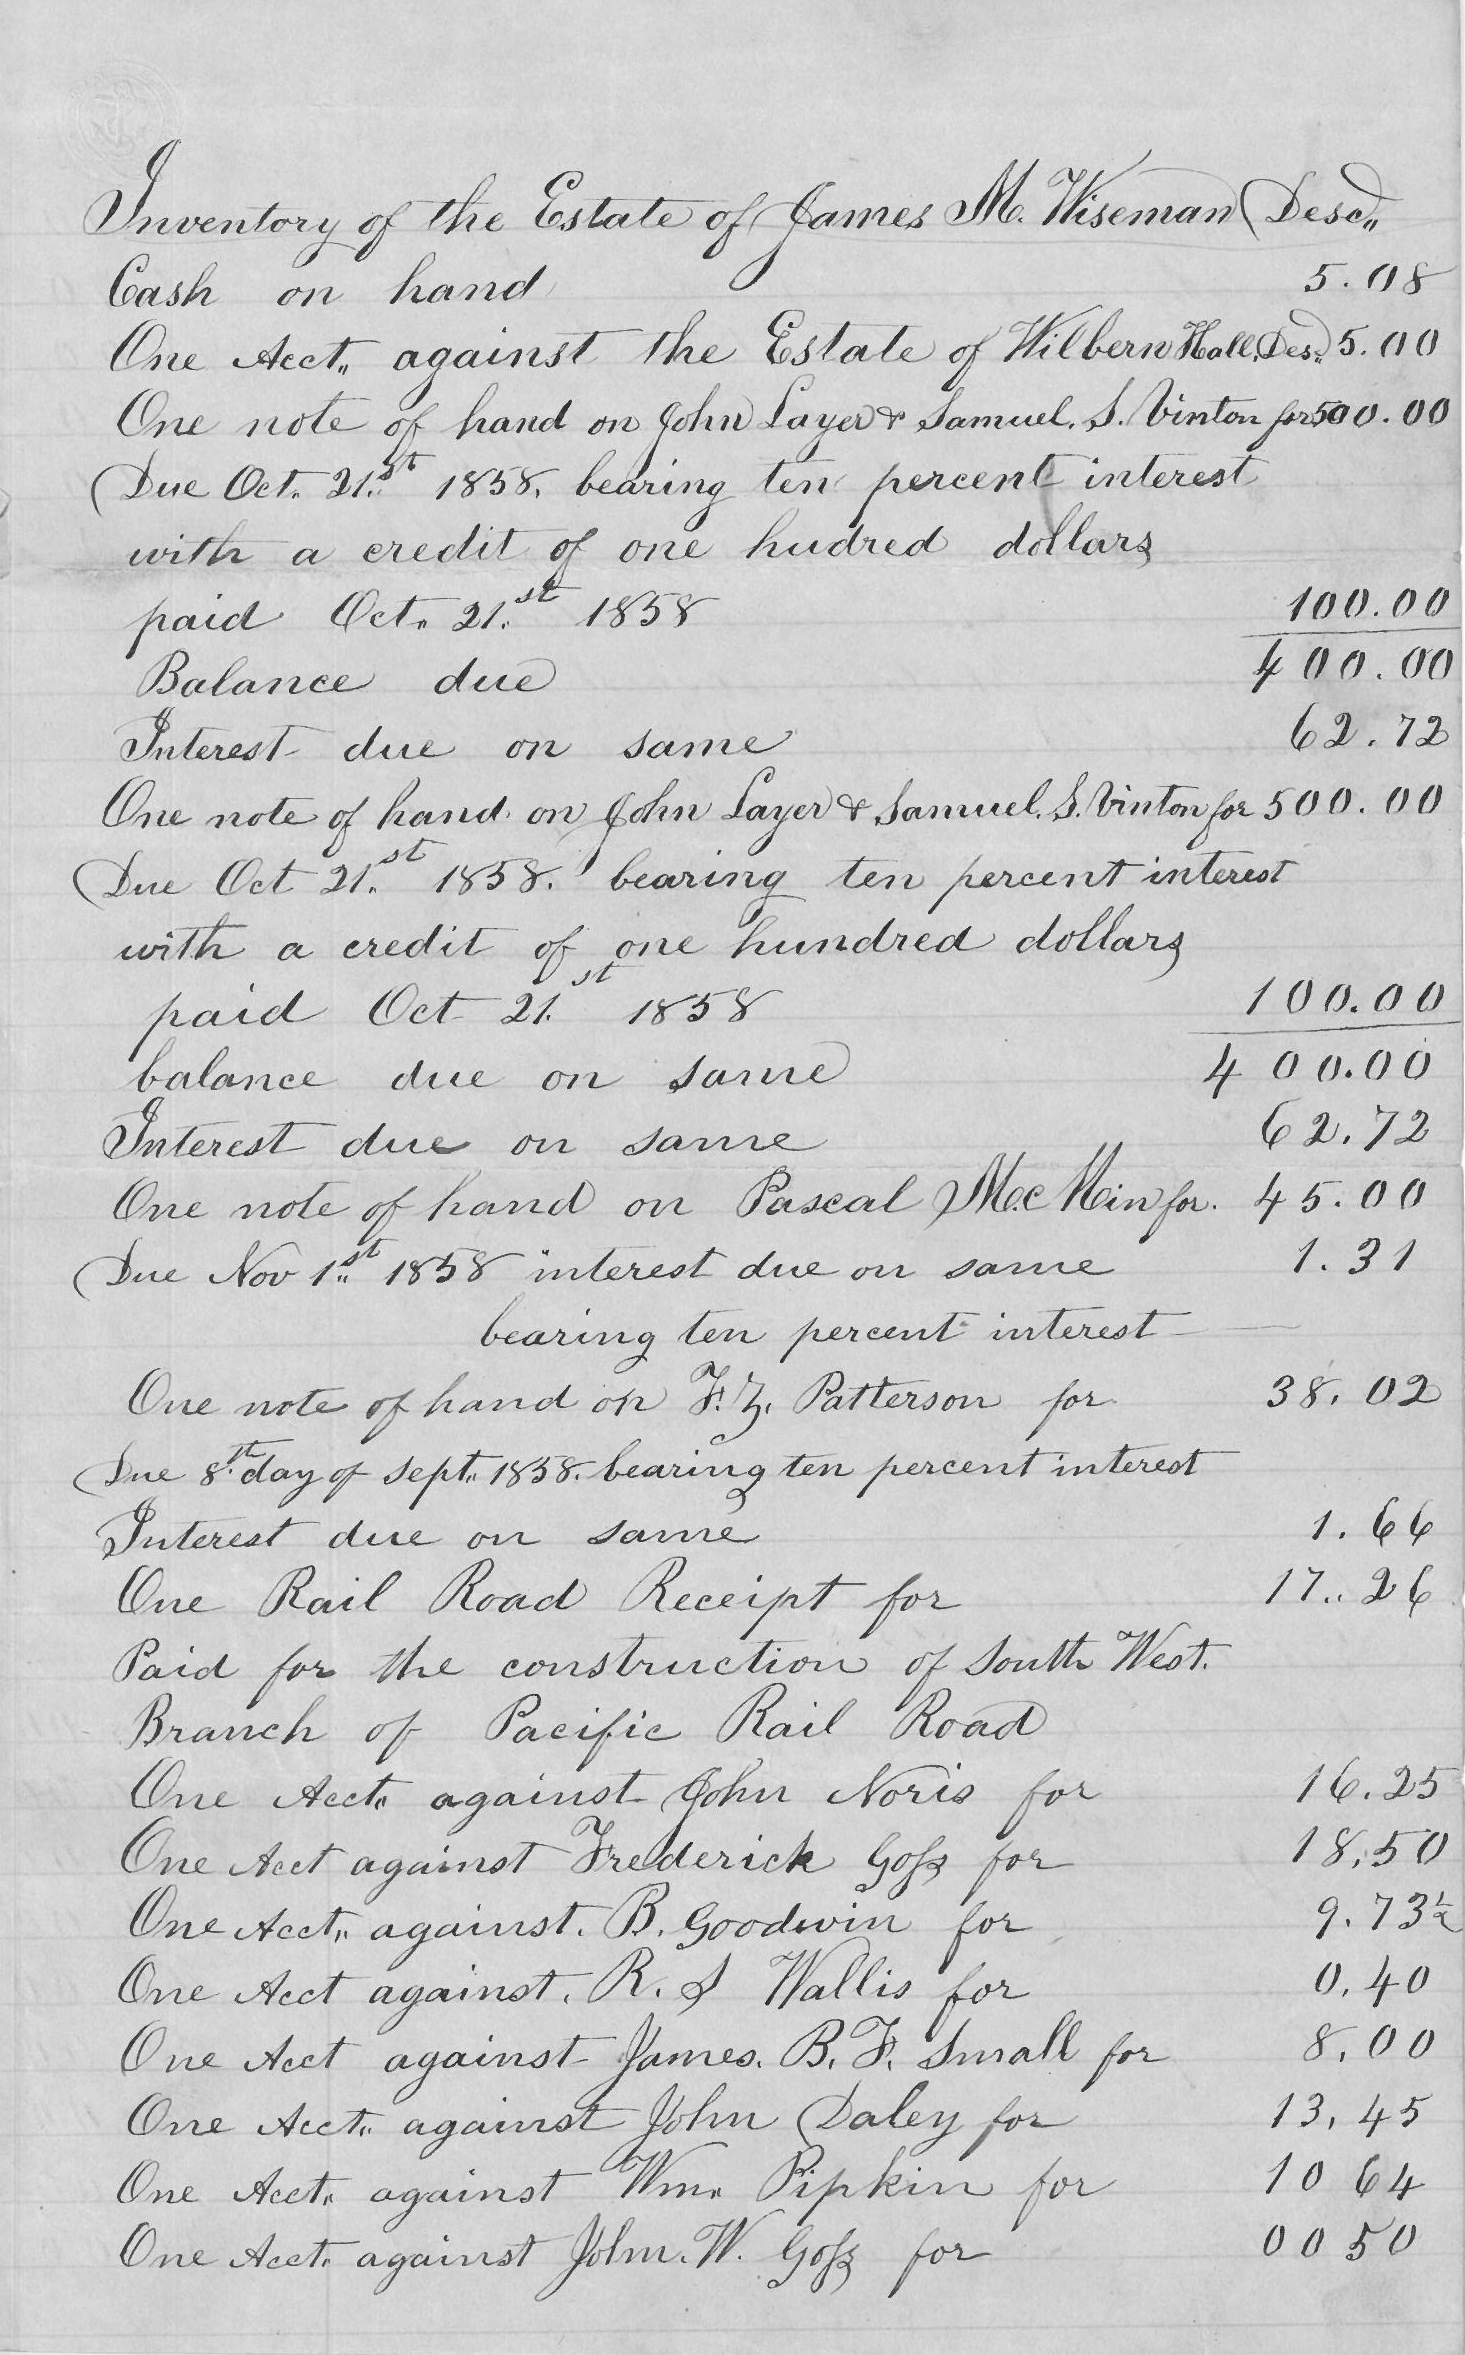 Inventory of the Estate of James M. Wiseman Desd,,
Cash on hand 5.08
One Acct,, against the Estate of Wilbern Hall, Des,, 5.00
One note of hand on John Layer & Samuel. S. Vinton for 500.00
Due Oct. 21.st 1858. bearing ten percent interest
with a credit of one hudred dollars
paid Oct,, 21.st 1858 100.00
Balance due 400.00
Interest due on same 62.72
One note of hand on John Layer & Samuel. S. Vinton for 500.00
Due Oct 21.st 1858. bearing ten percent interest
with a credit of one hundred dollars
paid Oct 21.st 1858 100.00
balance due on same 400.00
Interest due on same 62.72
One note of hand on Pascal Mc.Min for. 45.00
Due Nov 1st 1858 interest due on same 1.31
bearing ten percent interest
One note of hand on F. Z. Patterson for 38.02
Due 8.th day of Sept,, 1858. bearing ten percent interest
Interest due on same 1.66
One Rail Road Receipt for 17..26
Paid for the construction of South West.
Branch of Pacific Rail Road
One Acct,, against John Noris for 16.25
One Acct against Frederick Goss for 18.50
One Acct,, against. B. Goodwin for 9.73½
One Acct against. R. S Wallis for 0.40
One Acct against James. B. F. Small for 8.00
One Acct,, against John Daley for 13.45
One Acct,, against Wm,, Pipkin for 10 64
One Acct. against John. W. Goss for 00 50